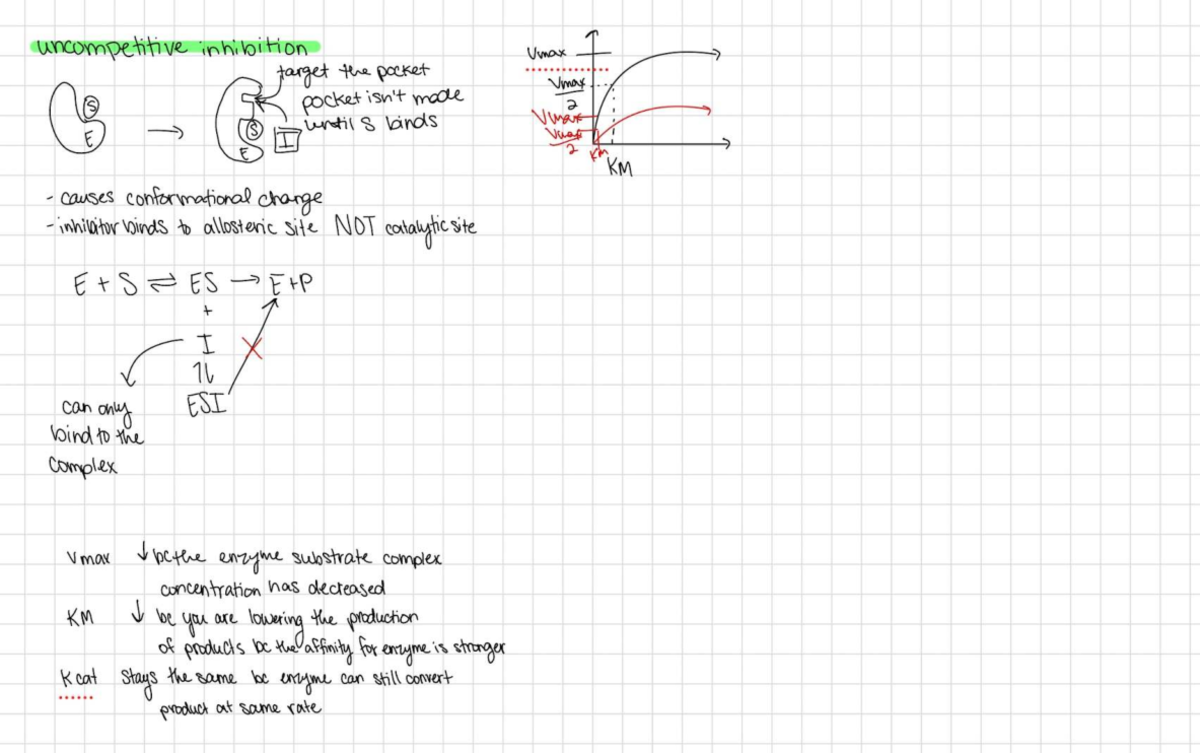 uncompetitive inhibition
target the pocket
pocket isn't made
until S binds
S
E
S
I
E
Vmax
Vmax
2
Vmax
Vmax
2
KM
KM
- causes conformational change
- inhibitor binds to allosteric site NOT catalytic site
E + S ⇌ ES → E+P
+
I
⇅
ESI
X
can only
bind to the
complex
Vmax ↓ bc the enzyme substrate complex
concentration has decreased
KM ↓ bc you are lowering the production
of products bc the affinity for enzyme is stronger
Kcat stays the same bc enzyme can still convert
product at same rate